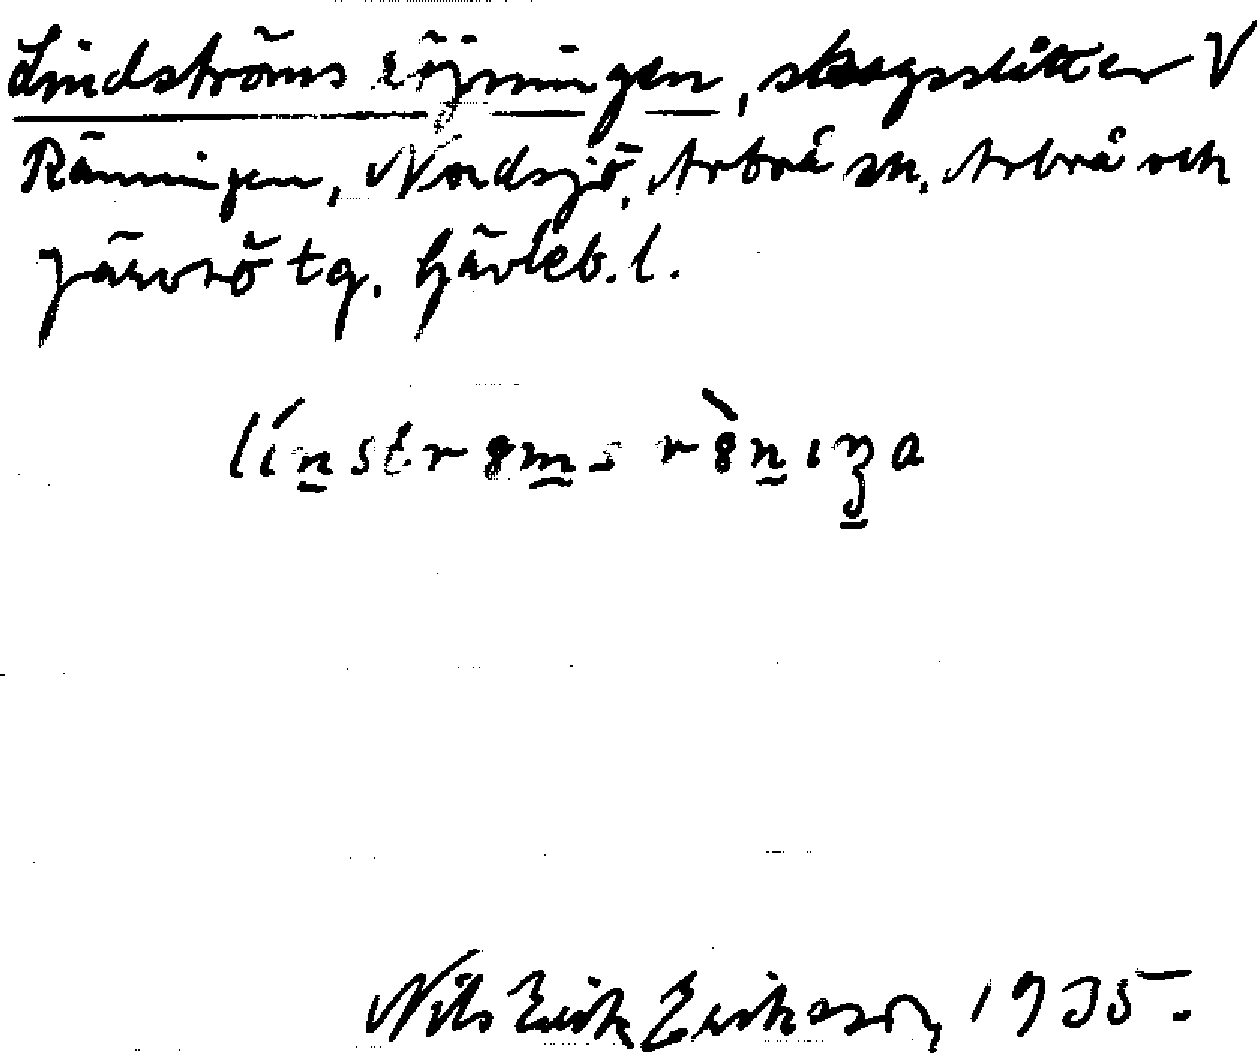 Lindströms röjningen, skogsslåtter V
Ränningen, Nordsjö, Arbrå sn. Arbrå och
Järvsö tg. Gävleb. l.
Nils Erik Eriksson, 1935.